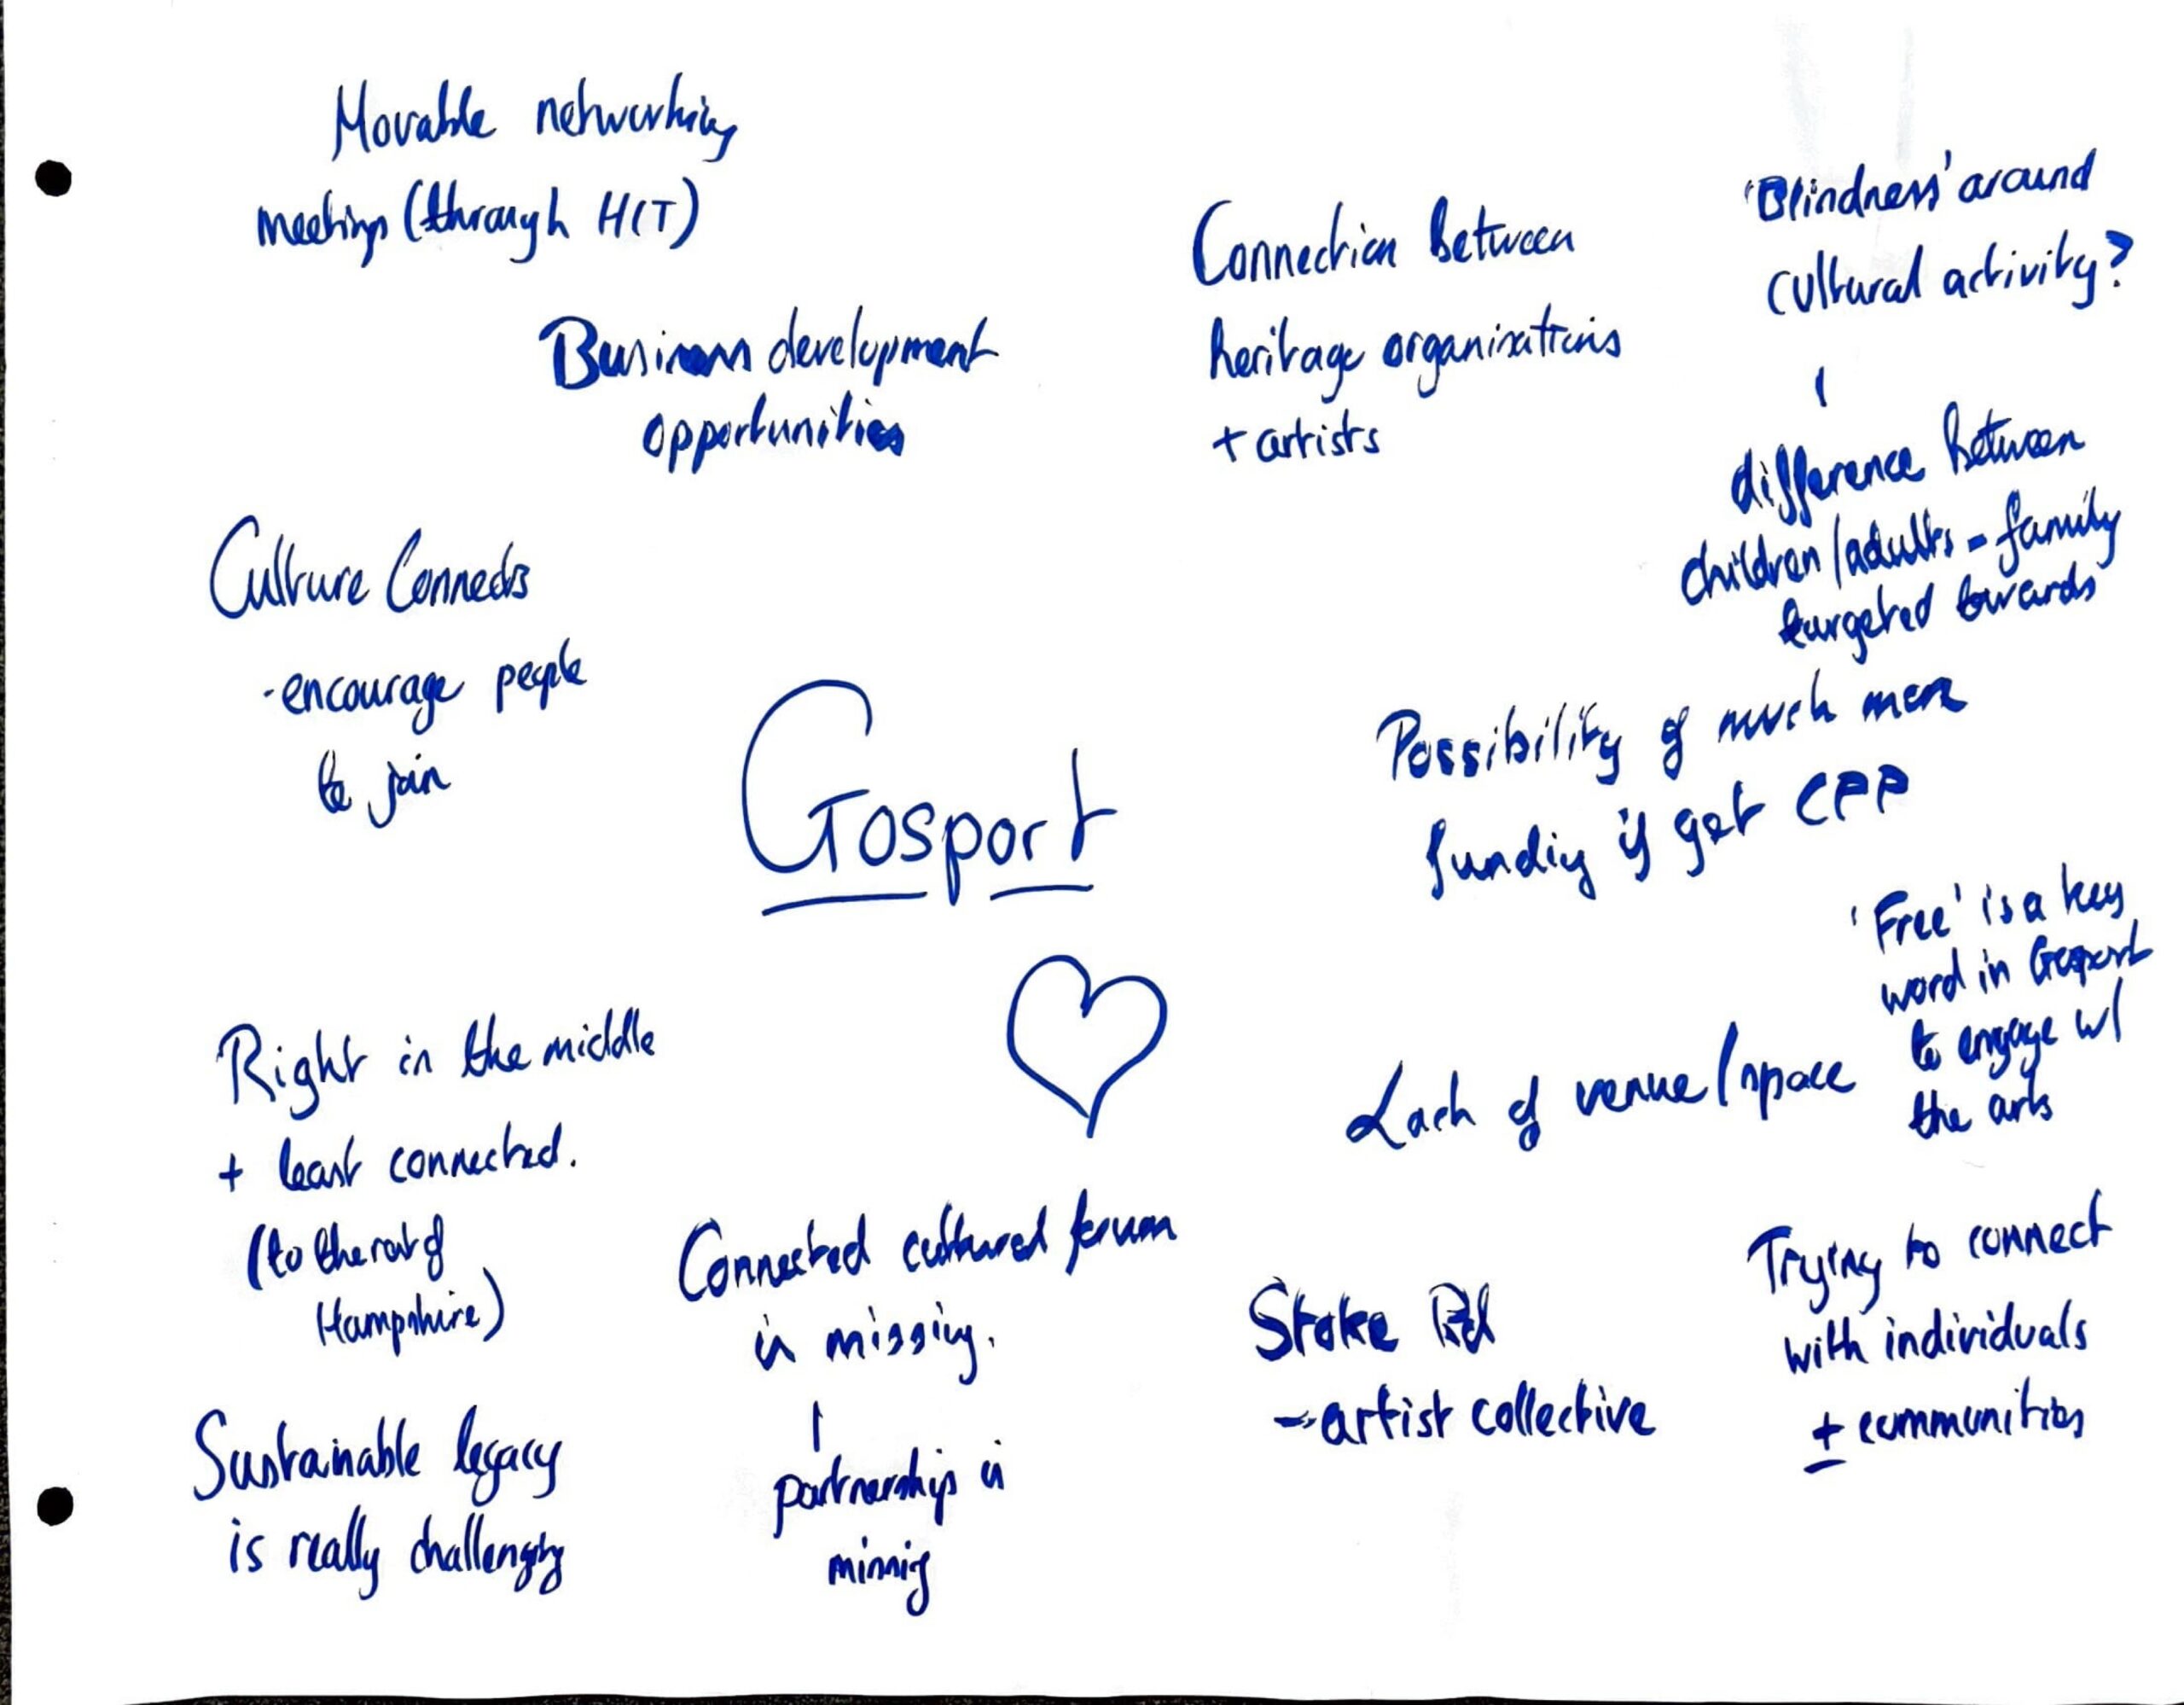 Movable networking
meetings (through HCT)
Business development
opportunities
Connection between
heritage organisations
+ artists
'Blindness' around
cultural activity?
difference between
children/adults - family
targeted towards
Culture Connects
- encourage people
to join
Gosport
Possibility of much more
funding if get CPP
'Free' is a key
word in Gosport
to engage w/
the arts
Lack of venue/space
Right in the middle
+ least connected.
(to the rest of
Hampshire)
Connected cultural forum
is missing.
partnership is
missing
Stoke Rd
- artist collective
Trying to connect
with individuals
+ communities
Sustainable legacy
is really challenging